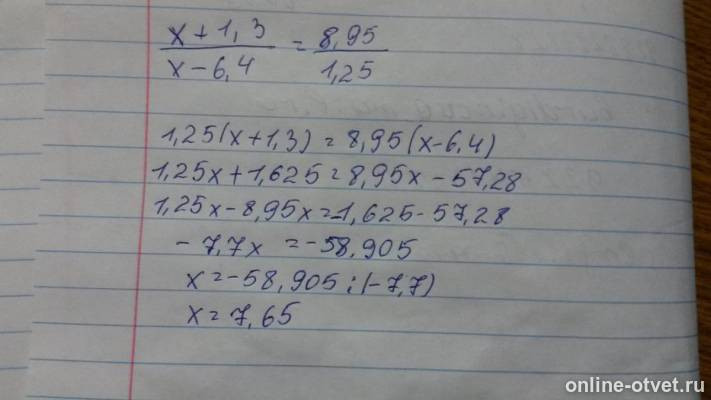 x+1,3 / x-6,4 = 8,95 / 1,25
1,25(x+1,3)=8,95(x-6,4)
1,25x+1,625=8,95x-57,28
1,25x-8,95x=-1,625-57,28
-7,7x=-58,905
x=-58,905:(-7,7)
x=7,65
online-otvet.ru